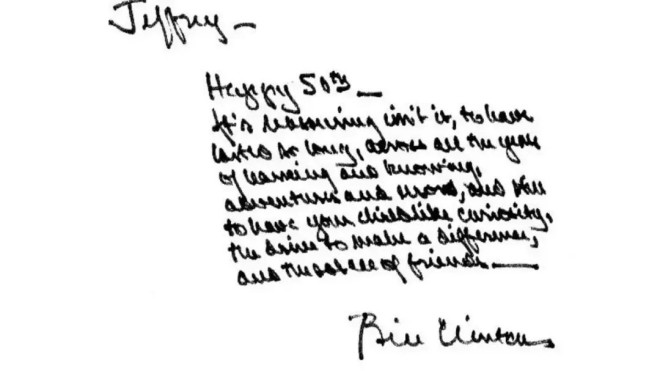 Jeffrey —
Happy 50th —
It's reassuring isn't it, to have
lasted as long, across all the years
of learning and knowing,
adventures and, and still
to have your childlike curiosity,
the drive to make a difference,
and the solace of friends —
Bill Clinton